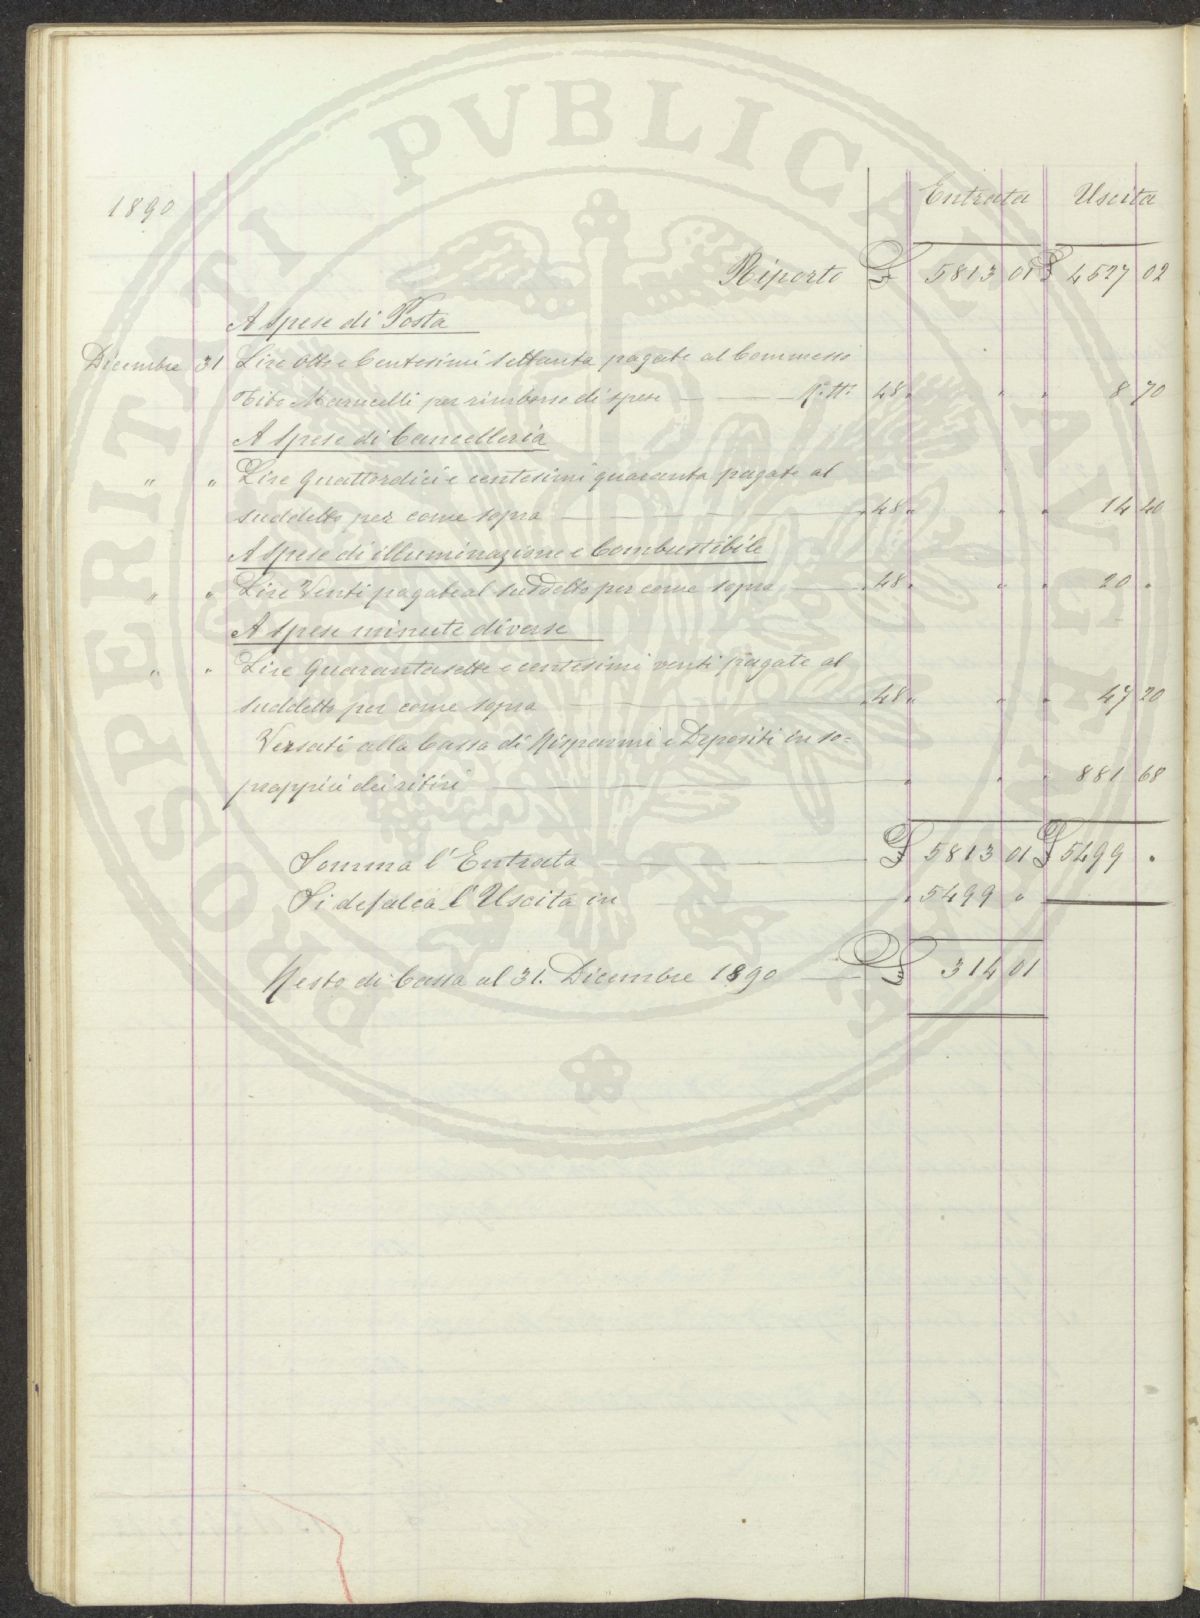 PROSPERITATI PVBLICAE AVGENDAE
1890 Entrata Uscita
Riporto £ 5813 01 £ 4527 02
A Spese di Posta
Dicembre 31 Lire Otto e Centesimi settanta pagate al Commesso
Tito Marucelli per rimborso di spese 48 " " " 8 70
A Spese di Cancelleria
" " Lire Quattordici e centesimi quaranta pagate al
suddetto per come sopra " 48 " " " 14 40
A Spese di illuminazione e Combustibile
" " Lire Venti pagate al suddetto per come sopra " 48 " " " 20 "
A Spese minute diverse
" " Lire Quarantasette e centesimi venti pagate al
suddetto per come sopra " 48 " " " 47 20
Versati alla Cassa di Risparmi e Depositi in so=
prappiù dei ritiri " " " 881 68
Somma l'Entrata £ 5813 01 £ 5499 "
Si defalca l'Uscita in " 5499 "
Resto di Cassa al 31. Dicembre 1890 £ 314 01